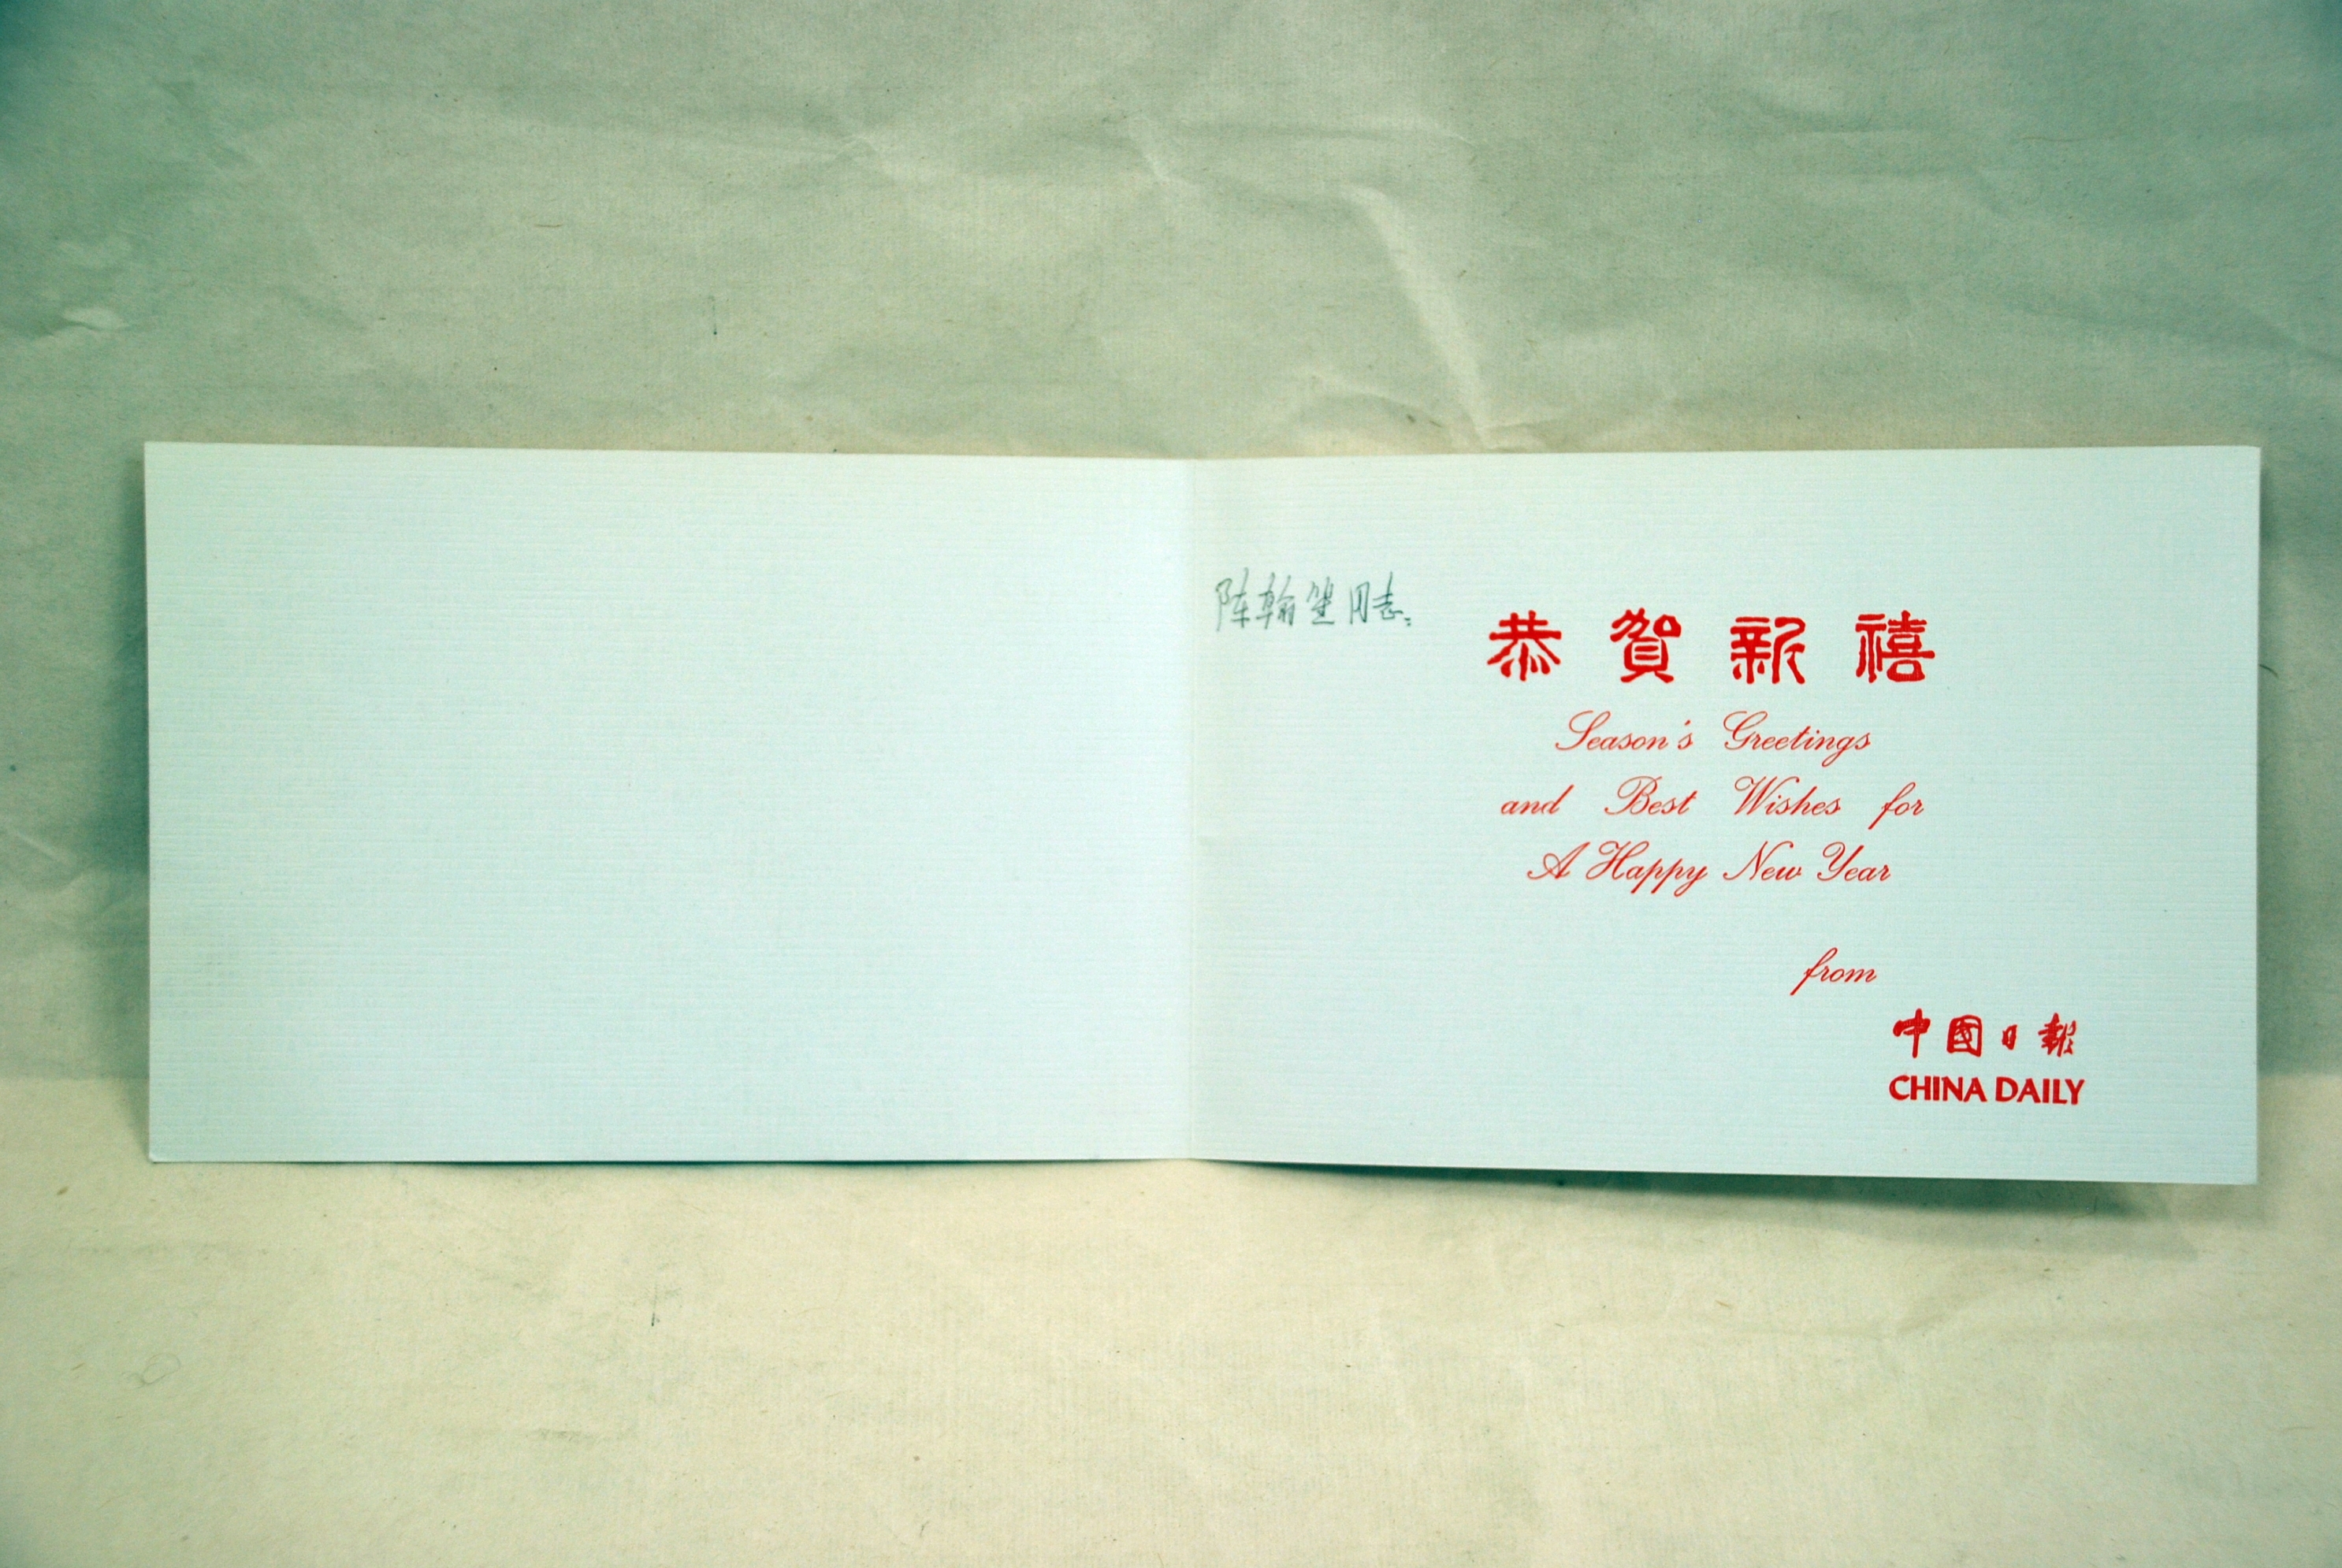 陈翰笙同志：
恭賀新禧
Season's Greetings
and Best Wishes for
A Happy New Year
from
中國日報
CHINA DAILY